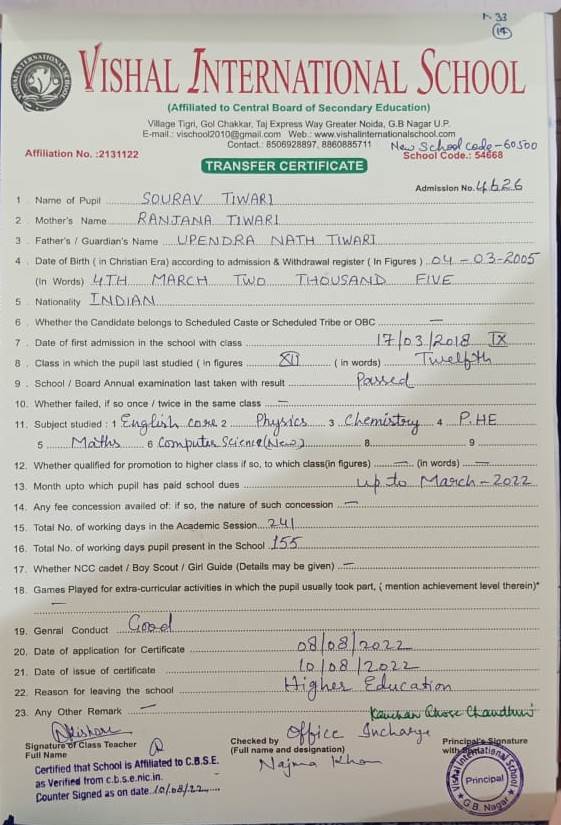 K 33
(14)
VISHAL INTERNATIONAL SCHOOL
VISHAL INTERNATIONAL SCHOOL
(Affiliated to Central Board of Secondary Education)
Village Tigri, Gol Chakkar, Taj Express Way Greater Noida, G.B Nagar U.P.
E-mail.: vischool2010@gmail.com Web.: www.vishalinternationalschool.com
Contact.: 8506928897, 8860885711 New School code - 60500
Affiliation No. :2131122 School Code.: 54668
TRANSFER CERTIFICATE
Admission No. 4626
1 . Name of Pupil SOURAV TIWARI
2 . Mother's Name RANJANA TIWARI
3 . Father's / Guardian's Name UPENDRA NATH TIWARI
4 . Date of Birth ( in Christian Era) according to admission & Withdrawal register ( In Figures ) 04 - 03-2005
(In Words) 4TH MARCH TWO THOUSAND FIVE
5 . Nationality INDIAN
6 . Whether the Candidate belongs to Scheduled Caste or Scheduled Tribe or OBC —
7 . Date of first admission in the school with class 17/03/2018 IX
8 . Class in which the pupil last studied ( in figures XII ( in words) Twelfth
9 . School / Board Annual examination last taken with result Passed
10. Whether failed, if so once / twice in the same class —
11. Subject studied : 1 English core 2 Physics 3 Chemistry 4 P.HE
5 Maths 6 Computer Science (New) 8 9
12. Whether qualified for promotion to higher class if so, to which class(in figures) — (in words) —
13. Month upto which pupil has paid school dues up to March - 2022
14. Any fee concession availed of: if so, the nature of such concession —
15. Total No. of working days in the Academic Session 241
16. Total No. of working days pupil present in the School 155
17. Whether NCC cadet / Boy Scout / Girl Guide (Details may be given) —
18. Games Played for extra-curricular activities in which the pupil usually took part, ( mention achievement level therein)*
—
19. Genral Conduct Good
20. Date of application for Certificate 08/08/2022
21. Date of issue of certificate 10/08/2022
22. Reason for leaving the school Higher Education
23. Any Other Remark —
Kanchan Ghose Chaudhuri
Signature of Class Teacher Checked by Office Incharge Principal's Signature
Full Name (Full name and designation) Najma Khan with
Certified that School is Affiliated to C.B.S.E.
as Verified from c.b.s.e.nic.in.
Counter Signed as on date 10/08/22
Vishal International School
Principal
G.B. Nagar